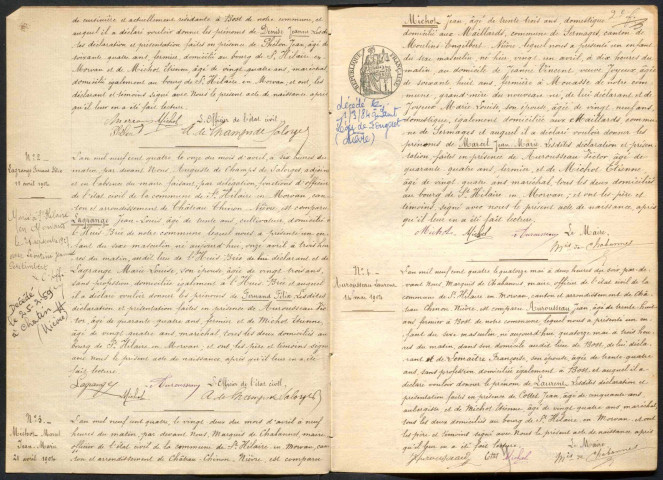 de cuisinière et actuellement résidante à Bost de notre commune, et
auquel il a déclaré vouloir donner les prénoms de Denise Jeanne Lesdi-
tes déclaration et présentation faites en présence de Jean, âgé de
soixante quatre ans, fermier domicilié au bourg de St Hilaire en
Morvan et de Michot Etienne, âgé de vingt quatre ans, maréchal,
domicilié également au bourg de St Hilaire en Morvan, et ont les
déclarant et témoins signé avec Nous le présent acte de naissance
après qu'il leur en a été fait lecture.
Michot L'Officier de l'état civil
A. de Champs de Saloryes
N° 2.
Lagrange Fernand Félix
11 avril 1904
L'an mil neuf cent quatre le onze du mois d'avril, à dix heures du
matin, par devant Nous Auguste de Champs de Saloryes adjoint
et en l'absence du maire faisant, par délégation, fonctions d'officier
de l'état civil de la commune de St Hilaire en Morvan, can-
ton et arrondissement de Château Chinon, Nièvre, est comparu
Lagrange Jean-Louis âgé de trente ans, cultivateur, domicilié à
l'Huis Brie de notre commune, lequel nous a présenté un en-
fant du sexe masculin né aujourd'hui, onze avril à trois heu-
res du matin, audit lieu de l'Huis Brie de lui déclarant et de
Lagrange Marie Louise, son épouse, âgée de vingt trois ans,
sans profession domiciliée également à l'Huis Brie et auquel
il a déclaré vouloir donner les prénoms de Fernand Félix Lesdites
déclaration et présentation faites en présence de Aurousseau Vic-
tor, âgé de quarante-quatre ans, fermier et de Michot Etienne,
âgé de vingt quatre ans maréchal, tous les deux domiciliés au
bourg de St Hilaire en Morvan, et ont, les père et témoins signé
avec Nous le présent acte de naissance après qu'il leur en a été
fait lecture.
Lagrange Michot Aurousseau L'Officier de l'état civil,
A. de Champs de Saloryes
Marié à St Hilaire
en Morvan
Décédé
le 2-5-1959
à Chatin
Nièvre
N° 3.
Michot Marcel
Jean Marie
21 avril 1904
L'an mil neuf cent quatre, le vingt deux du mois d'avril à neuf
heures du matin, par devant Nous, Marquis de Chabannes, maire
officier de l'état civil de la commune de St Hilaire en Morvan, can-
ton et arrondissement de Château Chinon, Nièvre, est comparu
Michot Jean, âgé de trente trois ans, domestique
domicilié aux Maillards, commune de Sermages, canton de
Moulins Engilbert, Nièvre, lequel nous a présenté un enfant
du sexe masculin, né hier, vingt un avril, à dix heures du
matin au domicile de Jeanne Vincent, veuve Joyeux âgée
de soixante huit ans fermière à Mouasse de notre com-
mune, grand'mère du nouveau né, de lui déclarant et de
Joyeux Marie Louise, son épouse, âgée de vingt neuf ans,
domestique, également domiciliée aux Maillards commune
de Sermages et auquel il a déclaré vouloir donner les
prénoms de Marcel Jean Marie Lesdites déclaration et présen-
tation, faites en présence de Aurousseau Victor âgé de
quarante-quatre ans, fermier, et de Michot Etienne
âgé de vingt-quatre ans, maréchal, tous les deux domiciliés
au bourg de St Hilaire en Morvan; et ont les père et
témoins, signé avec nous le présent acte de naissance, après
qu'il leur en a été fait lecture.
Michot Michot Aurousseau Le Maire,
Mis de Chabannes
RÉPUBLIQUE FRANÇAISE
Décédé le
(Nièvre)
N° 4.
Aurousseau Laurent
14 mai 1904
L'an mil neuf cent quatre le quatorze mai à deux heures du soir par de-
vant Nous Marquis de Chabannes maire, officier de l'état civil de la com-
mune de St Hilaire en Morvan, canton et arrondissement de Châ-
teau Chinon Nièvre, est comparu Aurousseau Jean, âgé de trente huit
ans, fermier à Bost de notre commune, lequel nous a présenté un en-
fant du sexe masculin, né aujourd'hui, quatorze mai à trois heu-
res du matin, dans son domicile audit lieu de Bost, de lui décla-
rant et de Lemaître Françoise, son épouse, âgée de trente-quatre
ans, sans profession domiciliée également à Bost, et auquel il a dé-
claré vouloir donner le prénom de Laurent Lesdites déclaration et
présentation faites en présence de Cottet Jean, âgé de cinquante ans
aubergiste, et de Michot Etienne, âgé de vingt-quatre ans, maréchal,
tous les deux domiciliés au bourg de St Hilaire, en Morvan, et ont les
père et témoins signé avec nous le présent acte de naissance après
qu'il leur en a été fait lecture.
Aurousseau Cottet Michot Le Maire
Mis de Chabannes